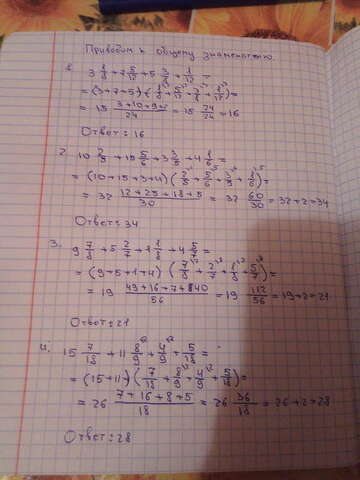 Приводим к общему знаменателю.
1.
3 1/8 + 7 5/12 + 5 3/8 + 1/12 =
= (3+7+5) + (1/8 + 5/12 + 3/8 + 1/12) =
= 15 3+10+9+2/24 = 15 24/24 = 16
Ответ: 16
2. 10 2/5 + 15 5/6 + 3 3/5 + 4 1/6 =
= (10+15+3+4) (2/5 + 5/6 + 3/5 + 1/6) =
= 32 12+25+18+5/30 = 32 60/30 = 32+2=34
Ответ: 34
3. 9 7/8 + 5 2/7 + 1 1/8 + 4 5/7 =
= (9+5+1+4) (7/8 + 2/7 + 1/8 + 5/7) =
= 19 49+16+7+40/56 = 19 112/56 = 19+2=21
Ответ: 21
4. 15 7/18 + 11 8/9 + 4/9 + 5/18 =
= (15+11) (7/18 + 8/9 + 4/9 + 5/18) =
= 26 7+16+8+5/18 = 26 36/18 = 26+2=28
Ответ: 28